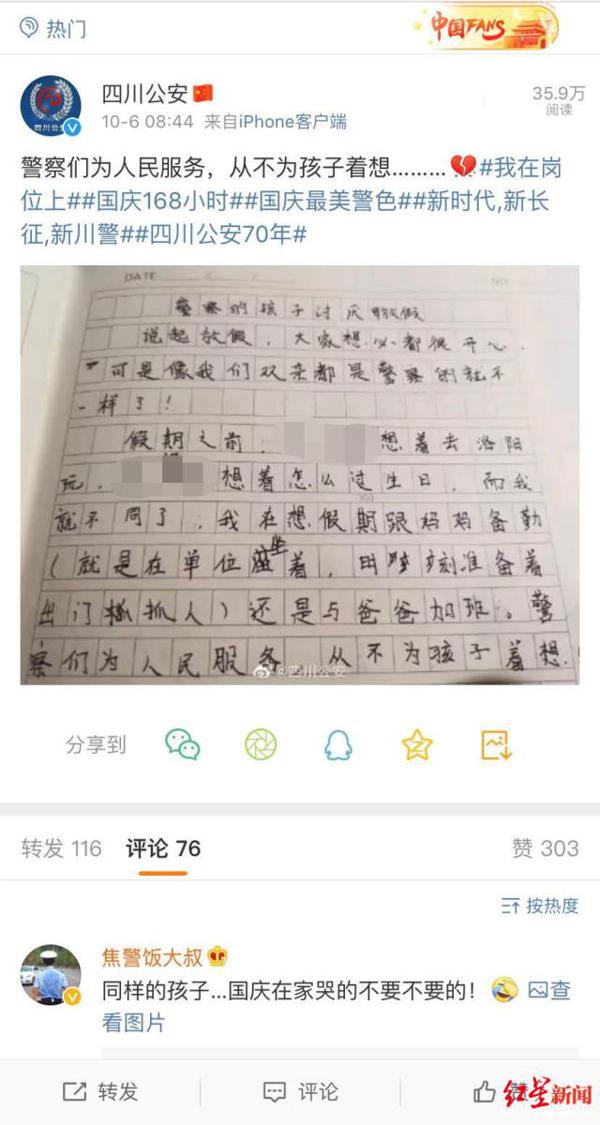 热门
中国FANS
四川公安
35.9万
阅读
10-6 08:44 来自iPhone客户端
警察们为人民服务，从不为孩子着想………💔#我在岗
位上##国庆168小时##国庆最美警色##新时代,新长
征,新川警##四川公安70年#
DATE
NO
警察的孩子讨厌放假
说起放假，大家想必都很开心．
可是像我们双亲都是警察的就不
一样了！
假期之前， 想着去洛阳
玩， 想着怎么过生日，而我
就不同了，我在想假期跟妈妈备勤
（就是在单位坐着，时刻准备着
出门抓人）还是与爸爸加班。警
察们为人民服务，从不为孩子着想．
@四川公安
分享到
转发 116 评论 76 赞 303
按热度
焦警饭大叔
同样的孩子...国庆在家哭的不要不要的！🤣 查
看图片
转发 评论 赞
红星新闻